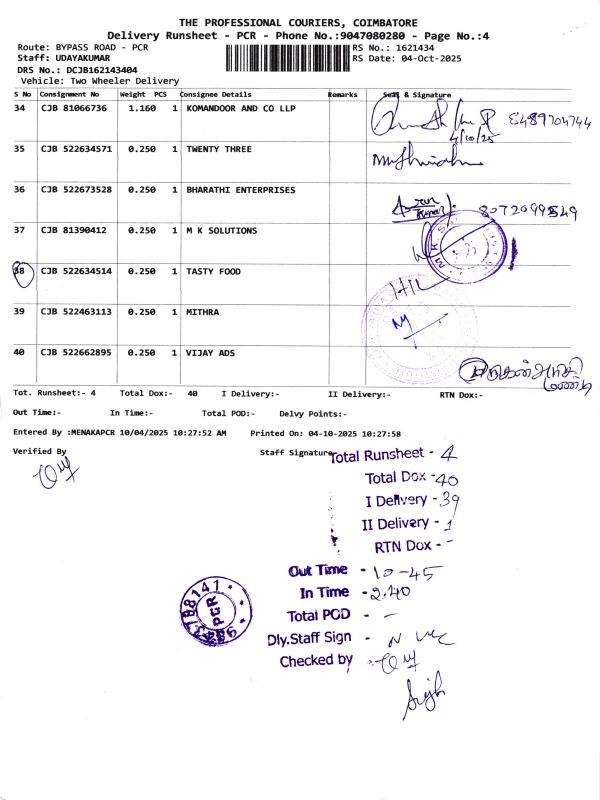 THE PROFESSIONAL COURIERS, COIMBATORE
Delivery Runsheet - PCR - Phone No.:9047080280 - Page No.:4
Route: BYPASS ROAD - PCR RS No.: 1621434
Staff: UDAYAKUMAR RS Date: 04-Oct-2025
DRS No.: DCJB162143404
Vehicle: Two Wheeler Delivery
S No Consignment No Weight PCS Consignee Details Remarks Seal & Signature
34 CJB 81066736 1.160 1 KOMANDOOR AND CO LLP 8489704744
4/10/25
35 CJB 522634571 0.250 1 TWENTY THREE
36 CJB 522673528 0.250 1 BHARATHI ENTERPRISES
8072099549
37 CJB 81390412 0.250 1 M K SOLUTIONS
38 CJB 522634514 0.250 1 TASTY FOOD
39 CJB 522463113 0.250 1 MITHRA
40 CJB 522662895 0.250 1 VIJAY ADS
Tot. Runsheet:- 4 Total Dox:- 40 I Delivery:- II Delivery:- RTN Dox:-
Out Time:- In Time:- Total POD:- Delvy Points:-
Entered By :MENAKAPCR 10/04/2025 10:27:52 AM Printed On: 04-10-2025 10:27:58
Verified By Staff Signature
Total Runsheet - 4
Total Dox - 40
I Delivery - 39
II Delivery - 1
RTN Dox - -
Out Time - 10-45
In Time - 2.40
Total POD - -
Dly.Staff Sign -
Checked by -
PCR